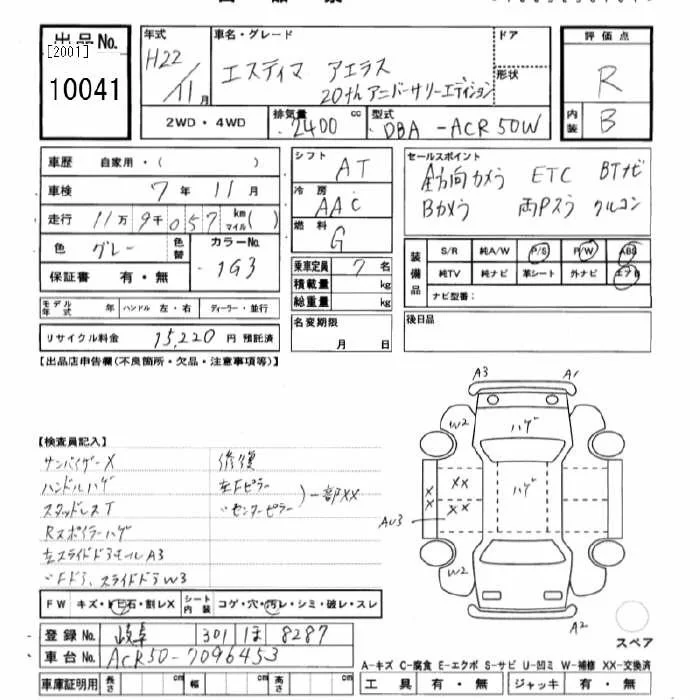 出品No.
[2001]
10041
年式
H22/11月
車名・グレード
エスティマ アエラス
20thアニバーサリーエディション
ドア
形状
2WD・4WD
排気量 2400 cc
型式 DBA-ACR50W
評価点
R
内装 B
車歴 自家用・( )
車検 7年11月
走行 11万9千057 km マイル( )
色 グレー 色替
カラーNo. 1G3
保証書 有・無
モデル年式 年 ハンドル 左・右 ディーラー・並行
リサイクル料金 15,220 円 預託済
シフト AT
冷房 AAC
燃料 G
乗車定員 7 名
積載量 kg
総重量 kg
名変期限
月 日
セールスポイント
全方向カメラ ETC BTナビ
Bカメラ 両Pスラ クルコン
装備品
S/R 純A/W P/S P/W ABS
純TV 純ナビ 革シート 外ナビ エアB
ナビ型番:
後日品
【出品店申告欄(不良箇所・欠品・注意事項等)】
【検査員記入】
サンバイザーX
ハンドルハゲ
スタッドレスT
Rスポイラーハゲ
左スライドドアモールA3
〃Fドア、スライドドアW3
修復
左Fピラー
〃センターピラー
)一部XX
A3 A1
W2 ハゲ
XX
X
XX
X
ハゲ
AU3
W2
A2
スペア
FW キズ・ヒ石・割レX シート内装 コゲ・穴・汚レ・シミ・破レ・スレ
登録No. 岐阜 301 ほ 8287
車台No. ACR50-7096453
車庫証明用 長さ cm 幅 cm 高さ cm
A-キズ C-腐食 E-エクボ S-サビ U-凹ミ W-補修 XX-交換済
工具 有・無 ジャッキ 有・無